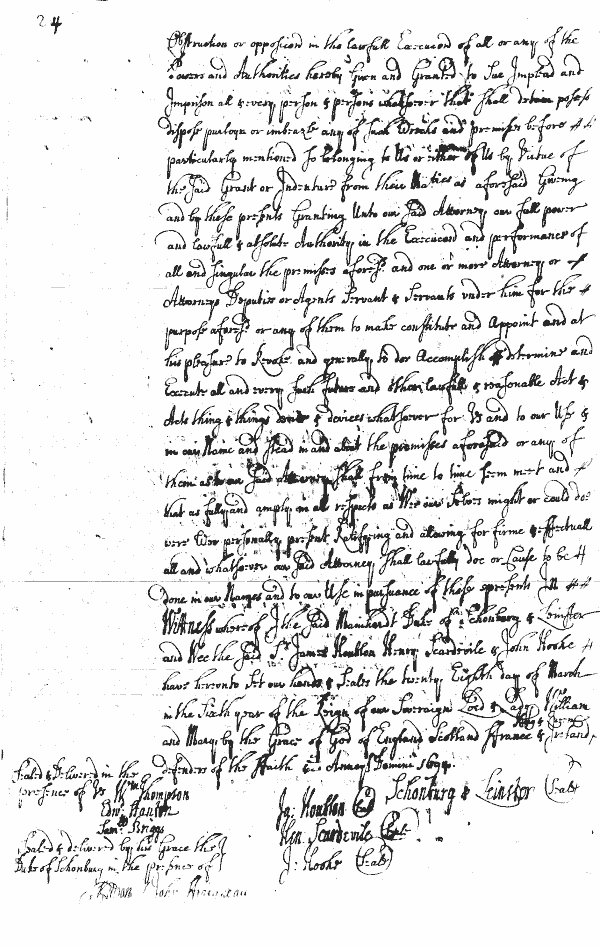 24
Obstruction or opposicon in the lawfull Execucon of all or any of the
Powers and Authorities hereby Given and Granted to Sue Implead and
Imprison all & every person & persons whatsoever that shall detain possess
dispose purloyn or imbeazle any of such Wrecks and premisses before
particularly mentioned So belonging to Us or either of Us by Virtue of
the Said Grant or Indenture from their Maties as aforesaid Giveing
and by these presents Granting Unto our Said Attorney our full power
and lawfull & absolute Authority in the Execucon and performance of
all and Singular the premisses aforesd. and one or more Attorney or
Attorneys Deputies or Agents Servant & Servants under him for the
purpose aforesd. or any of them to make constitute and Appoint and at
his pleasure to Revoke and generally to doe Accomplish determine and
Execute all and every Such further and other lawfull & reasonable Act &
Acts thing & things & devices whatsoever for Us and to our Use &
in our Name and Stead in and about the premisses aforesaid or any of
them as to our Said Attorney Shall from time to time Seem meet and
that as fully and amply in all respects as Wee our Selves might or could doe
were Wee personally present Ratifying and allowing for firme & effectuall
all and whatsoever our Said Attorney Shall lawfully doe or Cause to be
done in our Names and to our Use in pursuance of these presents In
Wittness whereof I the Said Mainhardt Duke of Schonburg & Leinster
and Wee the Said Sr. James Houblon Henry Scardevile & John Hooke
have hereunto Set our hands & Seales the twenty Eighth day of March
in the Sixth year of the Reign of our Soveraign Lord & Lady William
and Mary by the Grace of God of England Scotland ffrance & Ireland,
defenders of the ffaith &c Annoq Domini 1694.
Sealed & Delivered in the
presence of Us Wm Thompson
Edw: Hanson
Sam: Briggs
Schonburg & Leinster Seale
Ja: Houblon Seale
Hen. Scardevile Seale
J: Hooke Seale
Sealed & delivered by his Grace the
Duke of Schonburg in the presence of
John